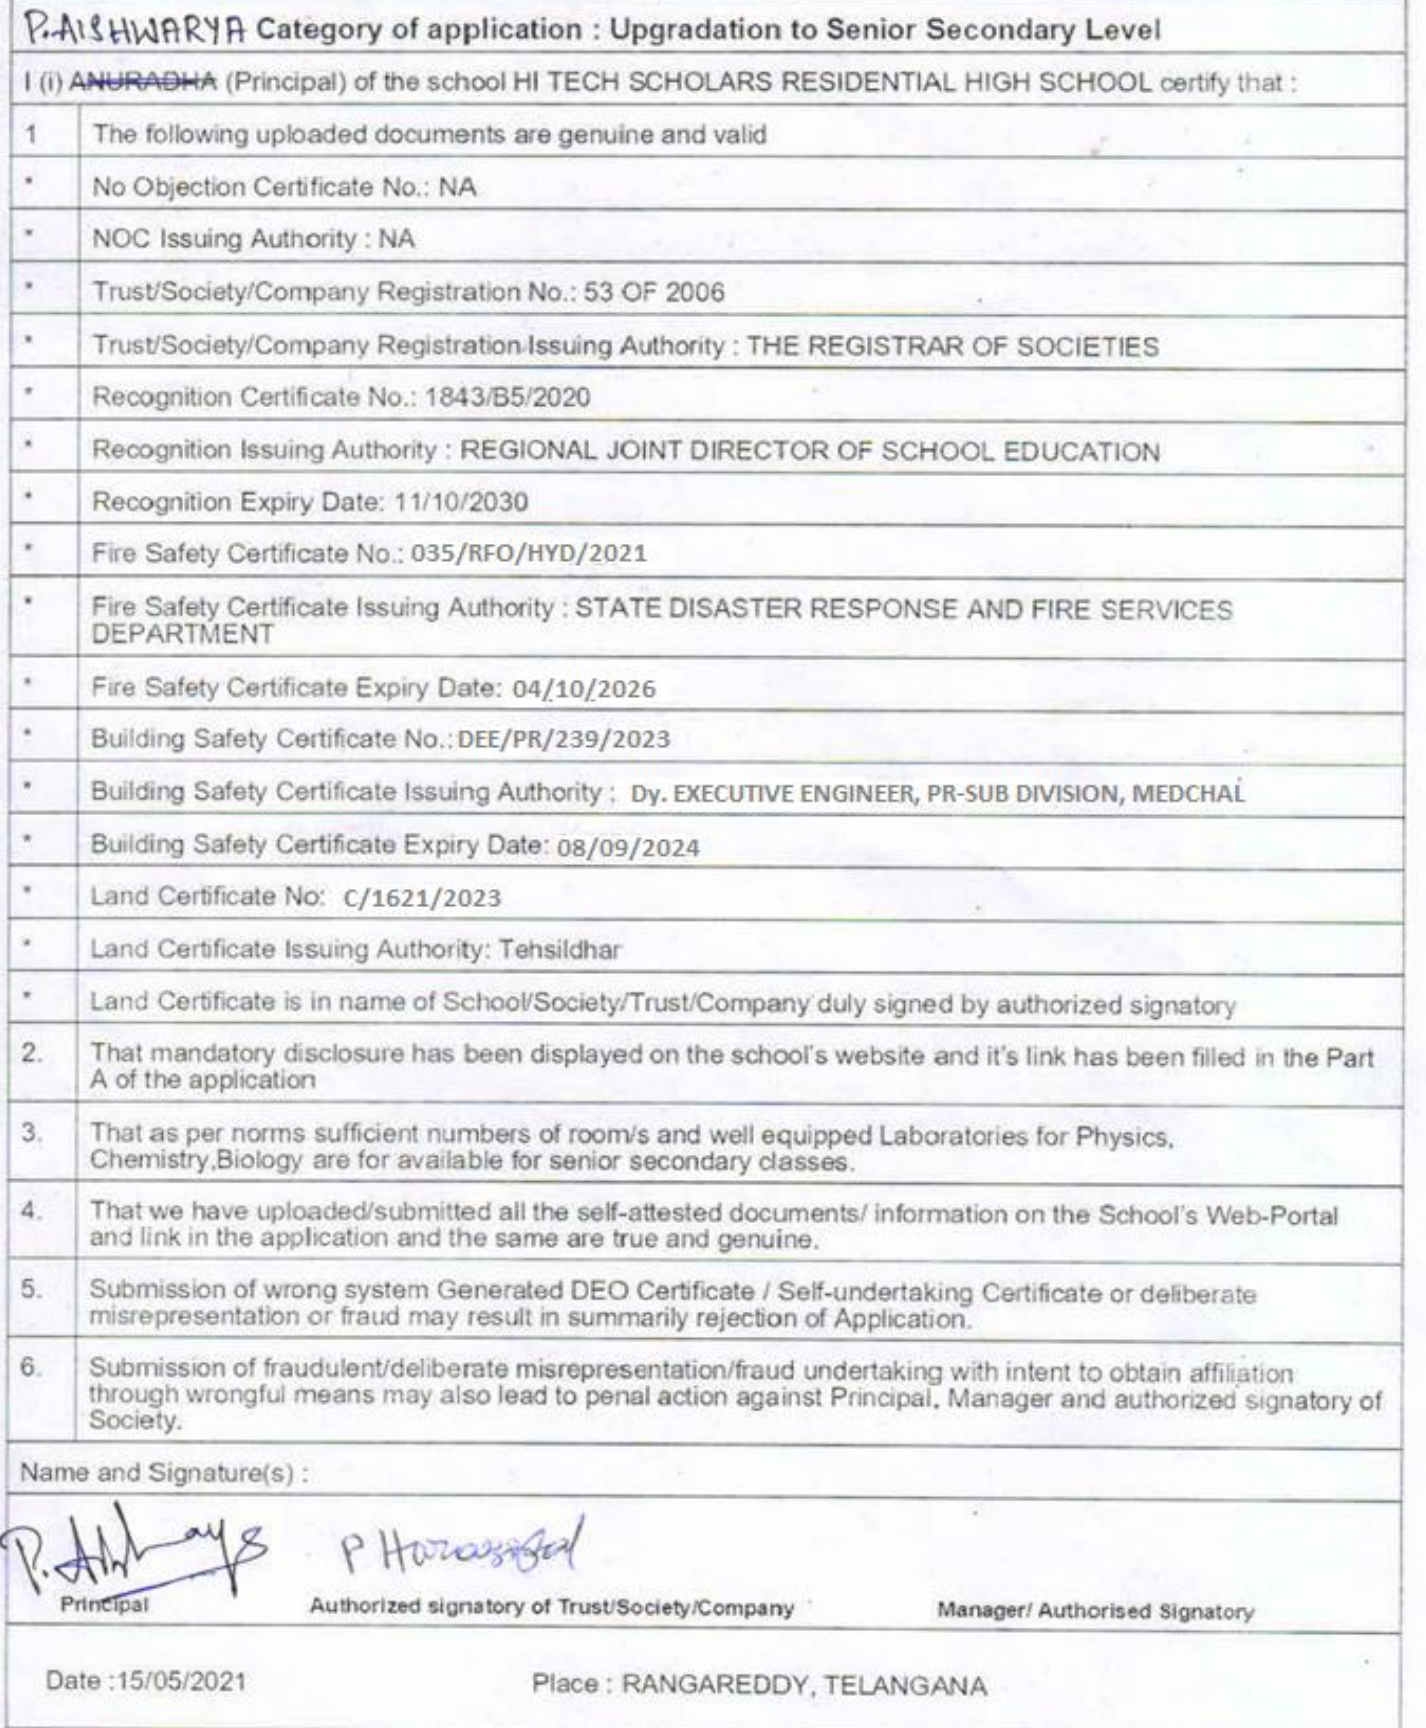 P. AISHWARYA Category of application : Upgradation to Senior Secondary Level
I (i) ANURADHA (Principal) of the school HI TECH SCHOLARS RESIDENTIAL HIGH SCHOOL certify that :
1 The following uploaded documents are genuine and valid
* No Objection Certificate No.: NA
* NOC Issuing Authority : NA
* Trust/Society/Company Registration No.: 53 OF 2006
* Trust/Society/Company Registration Issuing Authority : THE REGISTRAR OF SOCIETIES
* Recognition Certificate No.: 1843/B5/2020
* Recognition Issuing Authority : REGIONAL JOINT DIRECTOR OF SCHOOL EDUCATION
* Recognition Expiry Date: 11/10/2030
* Fire Safety Certificate No.: 035/RFO/HYD/2021
* Fire Safety Certificate Issuing Authority : STATE DISASTER RESPONSE AND FIRE SERVICES
DEPARTMENT
* Fire Safety Certificate Expiry Date: 04/10/2026
* Building Safety Certificate No.: DEE/PR/239/2023
* Building Safety Certificate Issuing Authority : Dy. EXECUTIVE ENGINEER, PR-SUB DIVISION, MEDCHAL
* Building Safety Certificate Expiry Date: 08/09/2024
* Land Certificate No: C/1621/2023
* Land Certificate Issuing Authority: Tehsildhar
* Land Certificate is in name of School/Society/Trust/Company duly signed by authorized signatory
2. That mandatory disclosure has been displayed on the school's website and it's link has been filled in the Part
A of the application
3. That as per norms sufficient numbers of room/s and well equipped Laboratories for Physics,
Chemistry,Biology are for available for senior secondary classes.
4. That we have uploaded/submitted all the self-attested documents/ information on the School's Web-Portal
and link in the application and the same are true and genuine.
5. Submission of wrong system Generated DEO Certificate / Self-undertaking Certificate or deliberate
misrepresentation or fraud may result in summarily rejection of Application.
6. Submission of fraudulent/deliberate misrepresentation/fraud undertaking with intent to obtain affiliation
through wrongful means may also lead to penal action against Principal, Manager and authorized signatory of
Society.
Name and Signature(s) :
Principal Authorized signatory of Trust/Society/Company Manager/ Authorised Signatory
Date :15/05/2021 Place : RANGAREDDY, TELANGANA